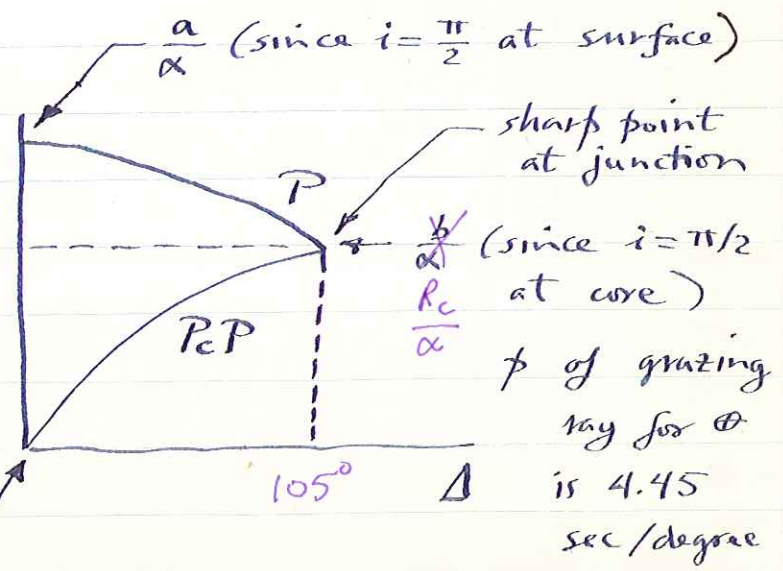 a/α (since i = π/2 at surface)
sharp point
at junction
P
b/α (since i = π/2
Rc/α at core)
PcP
p of grazing
ray for ⊕
105° Δ is 4.45
sec/degree